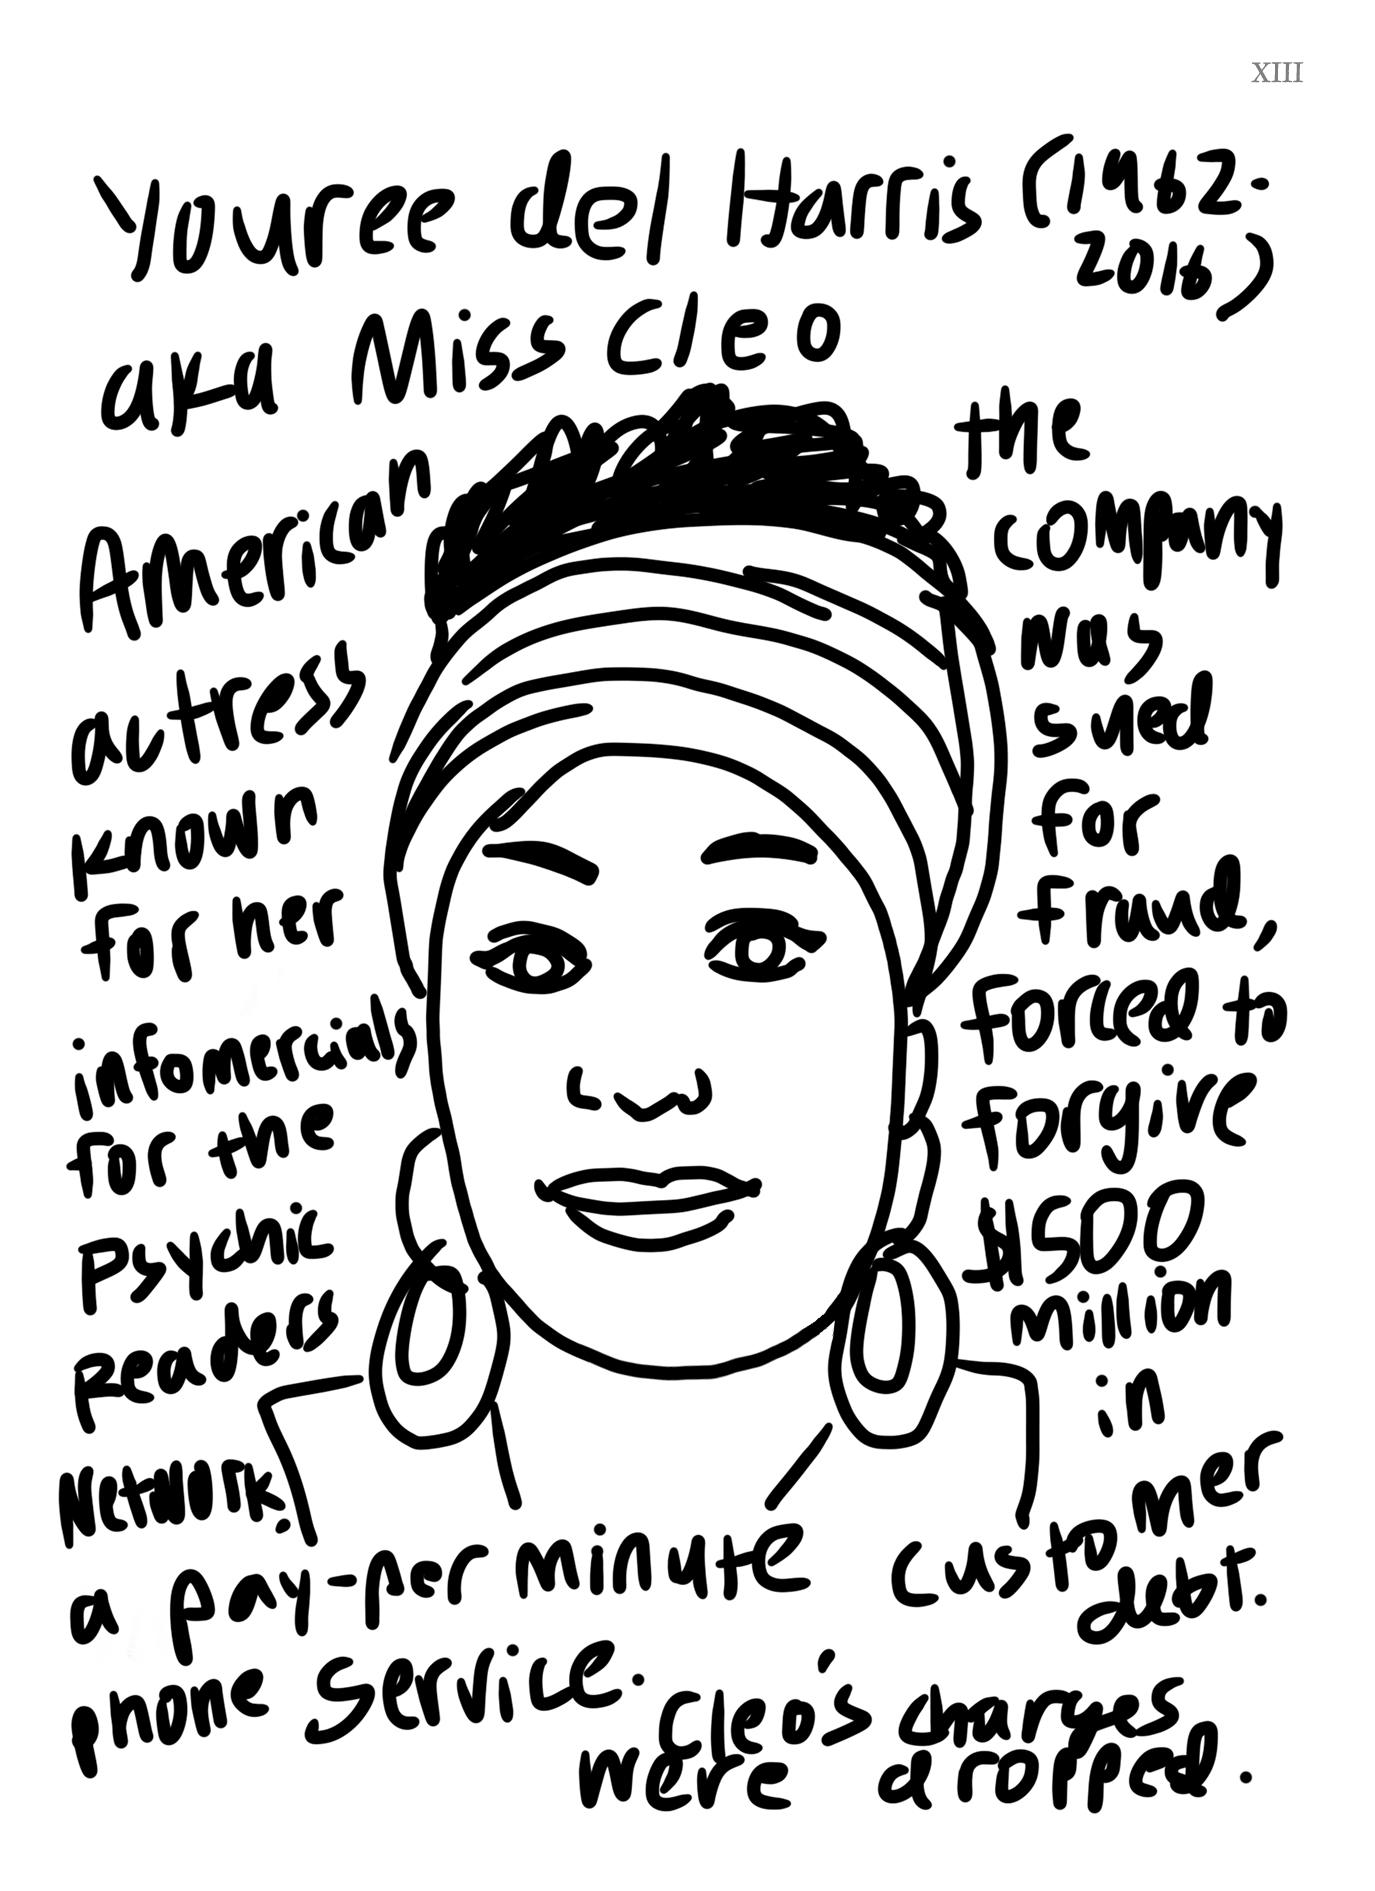 XIII
Youree del Harris (1962-
2016)
aka Miss Cleo
American
actress
known
for her
infomercials
for the
Psychic
Readers
Network,
a pay-per minute
phone service.
the
company
was
sued
for
fraud,
forced to
forgive
$500
million
in
customer
debt.
Cleo's charges
were dropped.